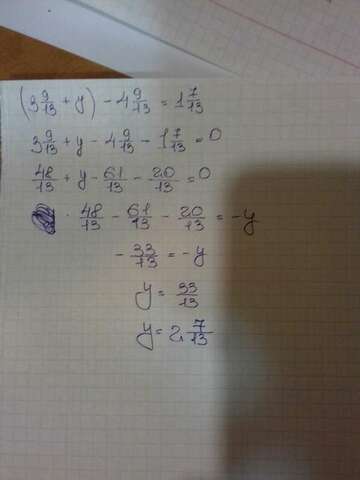 (3 9/13 + y) - 4 9/13 = 1 7/13
3 9/13 + y - 4 9/13 - 1 7/13 = 0
48/13 + y - 61/13 - 20/13 = 0
· 48/13 - 61/13 - 20/13 = -y
- 33/13 = -y
y = 33/13
y = 2 7/13